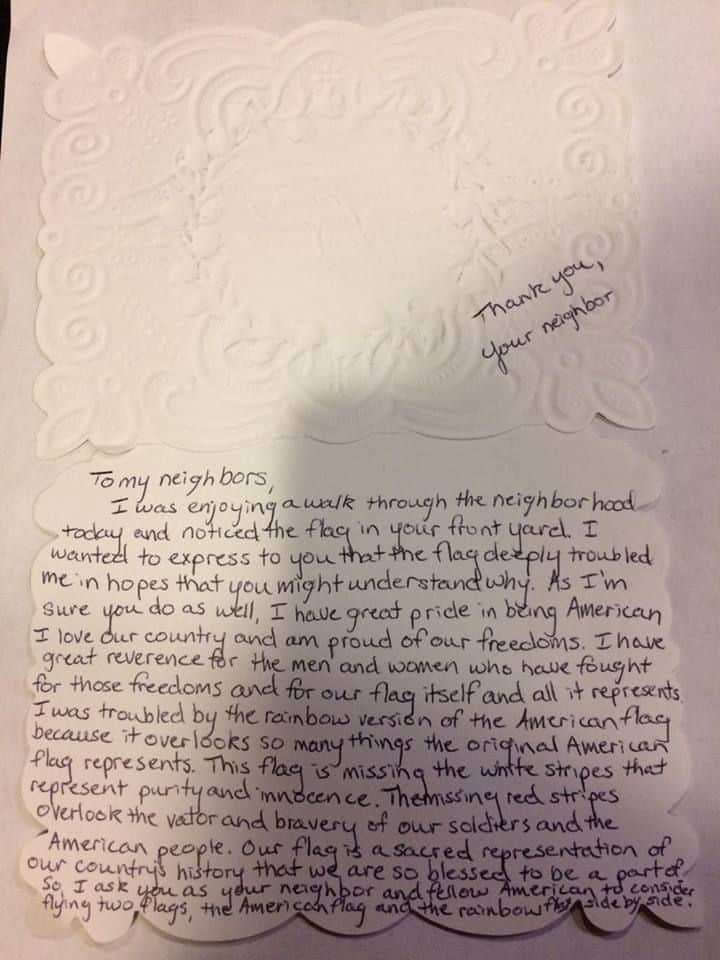 Thank you,
your neighbor
To my neighbors,
I was enjoying a walk through the neighborhood
today and noticed the flag in your front yard. I
wanted to express to you that the flag deeply troubled
me in hopes that you might understand why. As I'm
sure you do as well, I have great pride in being American
I love our country and am proud of our freedoms. I have
great reverence for the men and women who have fought
for those freedoms and for our flag itself and all it represents.
I was troubled by the rainbow version of the American flag
because it overlooks so many things the original American
flag represents. This flag is missing the white stripes that
represent purity and innocence. The missing red stripes
overlook the valor and bravery of our soldiers and the
American people. Our flag is a sacred representation of
our country's history that we are so blessed to be a part of.
So, I ask you as your neighbor and fellow American to consider
flying two flags, the American flag and the rainbow flag side by side.